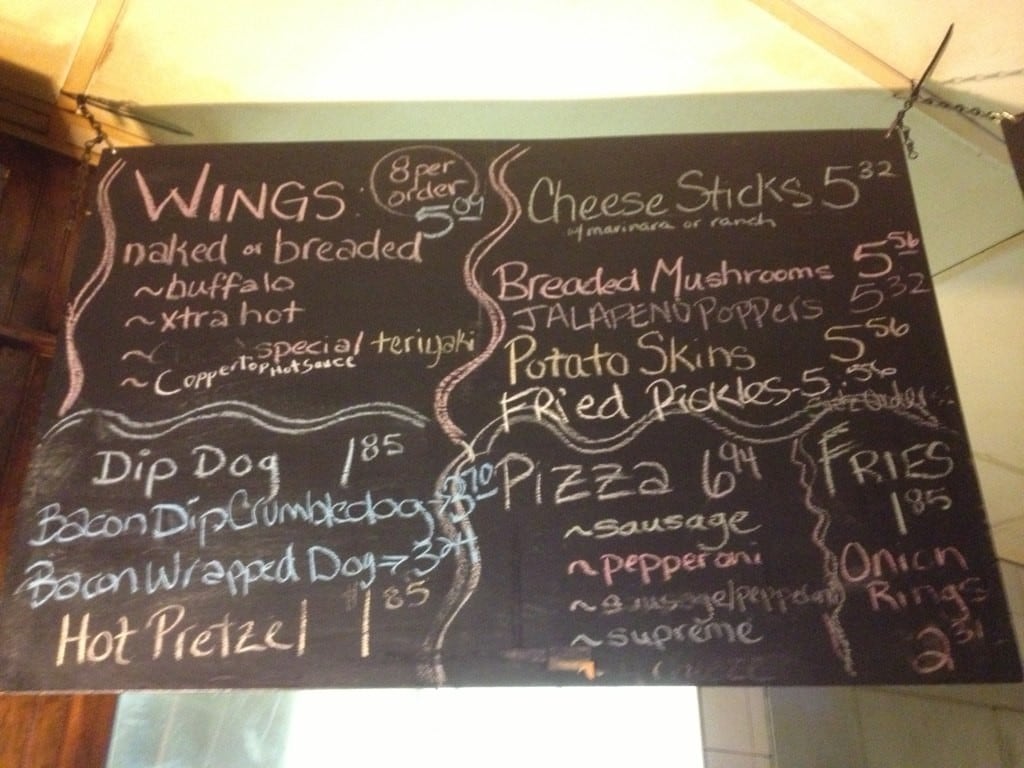 WINGS
8 per
order
5 09
naked or breaded
~buffalo
~xtra hot
~ special teriyaki
~CopperTop Hot Sauce
Cheese Sticks 5 32
w/marinara or ranch
Breaded Mushrooms 5 56
JALAPENO Poppers 5 32
Potato Skins 5 56
FRied Pickles-5 56
Dip Dog 1 85
Bacon Dip Crumbledog→3 70
Bacon Wrapped Dog→3 24
Hot Pretzel 1 85
Pizza 6 94
~sausage
~pepperoni
~sausage/pepperoni
~supreme
FRIES
1 85
Onion
Rings
2 31